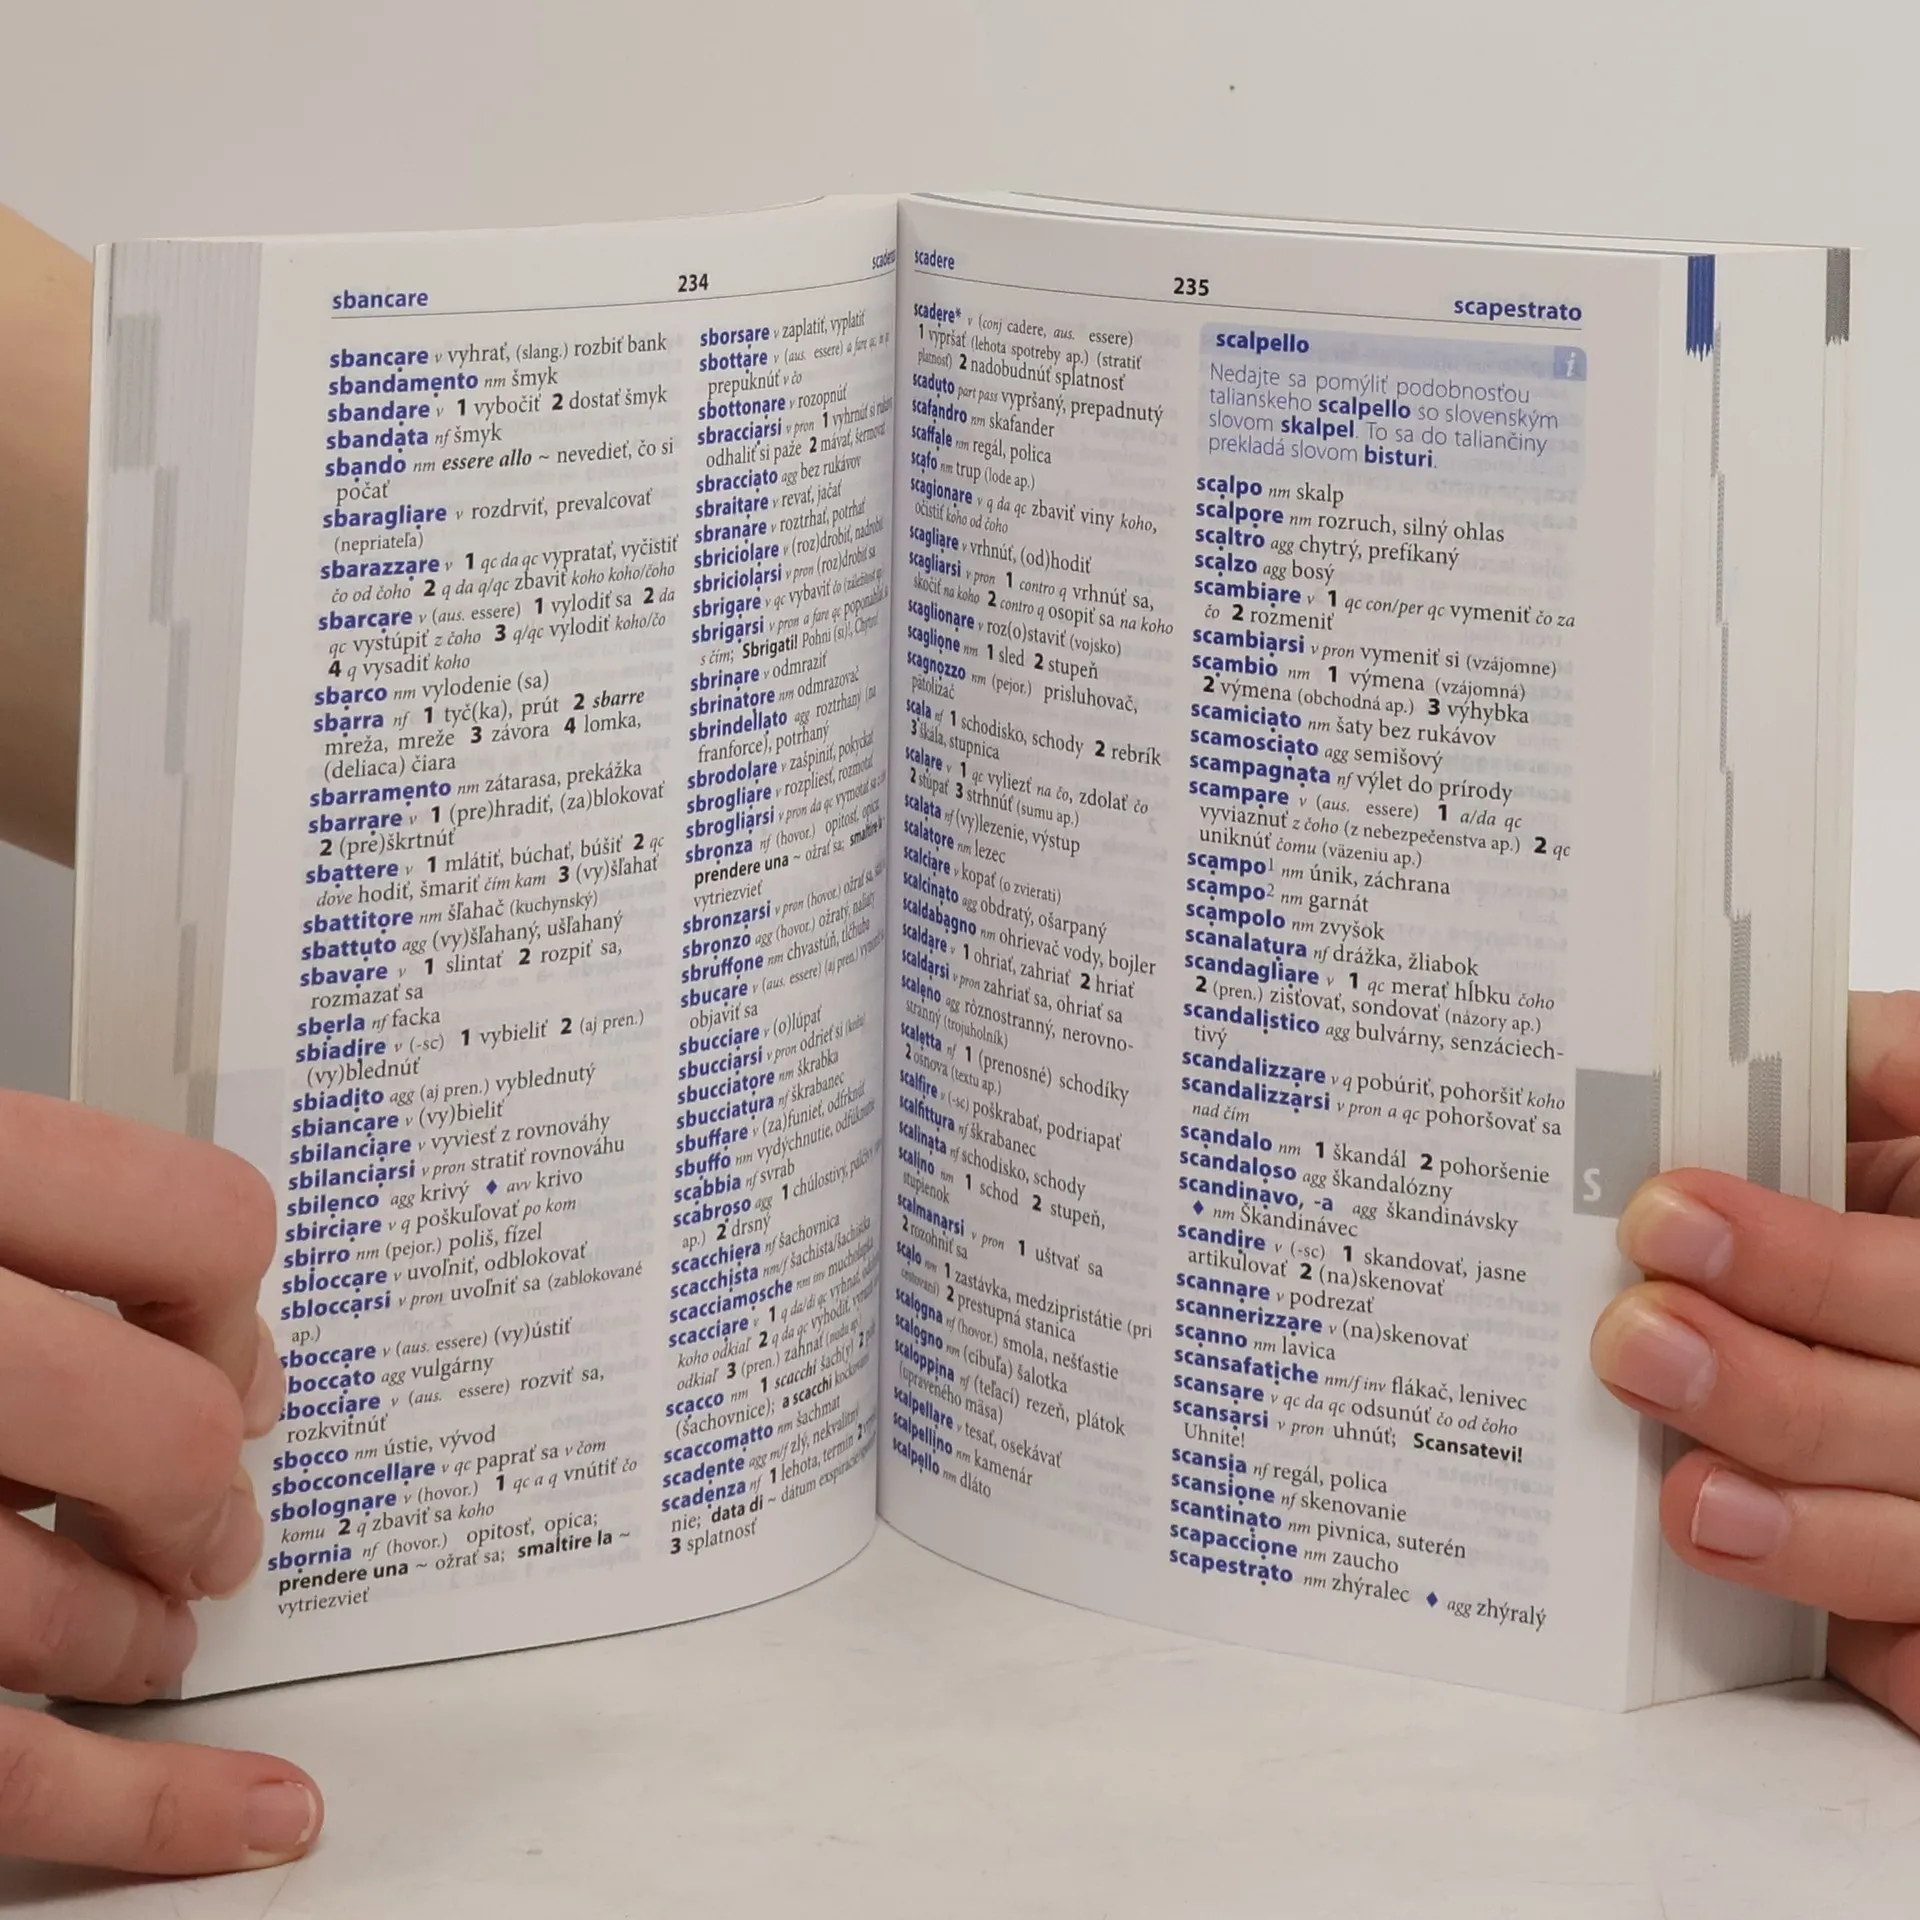 sbancare
234
scadenz
sbancare v vyhrať, (slang.) rozbiť bank
sbandamento nm šmyk
sbandare v 1 vybočiť 2 dostať šmyk
sbandata nf šmyk
sbando nm essere allo ~ nevedieť, čo si
počať
sbaragliare v rozdrviť, prevalcovať
(nepriateľa)
sbarazzare v 1 qc da qc vypratať, vyčistiť
čo od čoho 2 q da q/qc zbaviť koho koho/čoho
sbarcare v (aus. essere) 1 vylodiť sa 2 da
qc vystúpiť z čoho 3 q/qc vylodiť koho/čo
4 q vysadiť koho
sbarco nm vylodenie (sa)
sbarra nf 1 tyč(ka), prút 2 sbarre
mreža, mreže 3 závora 4 lomka,
(deliaca) čiara
sbarramento nm zátarasa, prekážka
sbarrare v 1 (pre)hradiť, (za)blokovať
2 (pre)škrtnúť
sbattere v 1 mlátiť, búchať, búšiť 2 qc
dove hodiť, šmariť čím kam 3 (vy)šľahať
sbattitore nm šľahač (kuchynský)
sbattuto agg (vy)šľahaný, ušľahaný
sbavare v 1 slintať 2 rozpiť sa,
rozmazať sa
sberla nf facka
sbiadire v (-sc) 1 vybieliť 2 (aj pren.)
(vy)blednúť
sbiadito agg (aj pren.) vyblednutý
sbiancare v (vy)bieliť
sbilanciare v vyviesť z rovnováhy
sbilanciarsi v pron stratiť rovnováhu
sbilenco agg krivý ♦ avv krivo
sbirciare v q poškuľovať po kom
sbirro nm (pejor.) poliš, fízel
sbloccare v uvoľniť, odblokovať
sbloccarsi v pron uvoľniť sa (zablokované
ap.)
sboccare v (aus. essere) (vy)ústiť
boccato agg vulgárny
sbocciare v (aus. essere) rozviť sa,
rozkvitnúť
sbocco nm ústie, vývod
sbocconcellare v qc paprať sa v čom
sbolognare v (hovor.) 1 qc a q vnútiť čo
komu 2 q zbaviť sa koho
sbornia nf (hovor.) opitosť, opica;
prendere una ~ ožrať sa; smaltire la ~
vytriezvieť
sborsare v zaplatiť, vyplatiť
sbottare v (aus. essere) a fare qc, in
prepuknúť v čo
sbottonare v rozopnúť
sbracciarsi v pron 1 vyhrnúť si
odhaliť si paže 2 mávať, šermovať
sbracciato agg bez rukávov
sbraitare v revať, jačať
sbranare v roztrhať, potrhať
sbriciolare v (roz)drobiť, nadrobiť
sbriciolarsi v pron (roz)drobiť sa
sbrigare v qc vybaviť čo (záležitosť ap.)
sbrigarsi v pron a fare qc poponáhľať
s čím; Sbrigati! Pohni (si)!,
sbrinare v odmraziť
sbrinatore nm odmrazovač
sbrindellato agg roztrhaný (na
franforce), potrhaný
sbrodolare v zašpiniť, pokyckať
sbrogliare v rozpliesť, rozmotať
sbrogliarsi v pron da qc vymotať sa z
sbronza nf (hovor.) opitosť, opica
prendere una ~ ožrať sa; smaltire la
vytriezvieť
sbronzarsi v pron (hovor.) ožrať sa,
sbronzo agg (hovor.) ožratý, naliaty
sbruffone nm chvastúň, tlčhuba
sbucare v (aus. essere) (aj pren.)
objaviť sa
sbucciare v (o)lúpať
sbucciarsi v pron odrieť si (kožu)
sbucciatore nm škrabka
sbucciatura nf škrabanec
sbuffare v (za)funieť, odfrknúť
sbuffo nm vydýchnutie, odfúknutie
scabbia nf svrab
scabroso agg 1 chúlostivý,
ap.) 2 drsný
scacchiera nf šachovnica
scacchista nm/f šachista/šachistka
scacciamosche nm inv mucholapka
scacciare v 1 q da/di qc vyhnať,
koho odkiaľ 2 q da qc vyhodiť,
odkiaľ 3 (pren.) zahnať (nudu ap.)
scacco nm 1 scacchi šach(y) 2
(šachovnice); a scacchi kockovaný
scaccomatto nm šachmat
scadente agg m/f zlý, nekvalitný
scadenza nf 1 lehota, termín 2
nie; data di ~ dátum exspirácie
3 splatnosť
scadere
235
scapestrato
scadere* v (conj cadere, aus. essere)
1 vypršať (lehota spotreby ap.) (stratiť
platnosť) 2 nadobudnúť splatnosť
scaduto part pass vypršaný, prepadnutý
scafandro nm skafander
scaffale nm regál, polica
scafo nm trup (lode ap.)
scagionare v q da qc zbaviť viny koho,
očistiť koho od čoho
scagliare v vrhnúť, (od)hodiť
scagliarsi v pron 1 contro q vrhnúť sa,
skočiť na koho 2 contro q osopiť sa na koho
scaglionare v roz(o)staviť (vojsko)
scaglione nm 1 sled 2 stupeň
scagnozzo nm (pejor.) prisluhovač,
pätolizač
scala nf 1 schodisko, schody 2 rebrík
3 škála, stupnica
scalare v 1 qc vyliezť na čo, zdolať čo
2 stúpať 3 strhnúť (sumu ap.)
scalata nf (vy)lezenie, výstup
scalatore nm lezec
scalciare v kopať (o zvierati)
scalcinato agg obdratý, ošarpaný
scaldabagno nm ohrievač vody, bojler
scaldare v 1 ohriať, zahriať 2 hriať
scaldarsi v pron zahriať sa, ohriať sa
scaleno agg rôznostranný, nerovno-
stranný (trojuholník)
scaletta nf 1 (prenosné) schodíky
2 osnova (textu ap.)
scalfire v (-sc) poškrabať, podriapať
scalfittura nf škrabanec
scalinata nf schodisko, schody
scalino nm 1 schod 2 stupeň,
stupienok
scalmanarsi v pron 1 uštvať sa
2 rozohniť sa
scalo nm 1 zastávka, medzipristátie (pri
cestovaní) 2 prestupná stanica
scalogna nf (hovor.) smola, nešťastie
scalogno nm (cibuľa) šalotka
scaloppina nf (teľací) rezeň, plátok
(upraveného mäsa)
scalpellare v tesať, osekávať
scalpellino nm kamenár
scalpello nm dláto
scalpello
i
Nedajte sa pomýliť podobnosťou
talianskeho scalpello so slovenským
slovom skalpel. To sa do taliančiny
prekladá slovom bisturi.
scalpo nm skalp
scalpore nm rozruch, silný ohlas
scaltro agg chytrý, prefíkaný
scalzo agg bosý
scambiare v 1 qc con/per qc vymeniť čo za
čo 2 rozmeniť
scambiarsi v pron vymeniť si (vzájomne)
scambio nm 1 výmena (vzájomná)
2 výmena (obchodná ap.) 3 výhybka
scamiciato nm šaty bez rukávov
scamosciato agg semišový
scampagnata nf výlet do prírody
scampare v (aus. essere) 1 a/da qc
vyviaznuť z čoho (z nebezpečenstva ap.) 2 qc
uniknúť čomu (väzeniu ap.)
scampo¹ nm únik, záchrana
scampo² nm garnát
scampolo nm zvyšok
scanalatura nf drážka, žliabok
scandagliare v 1 qc merať hĺbku čoho
2 (pren.) zisťovať, sondovať (názory ap.)
scandalistico agg bulvárny, senzáciech-
tivý
scandalizzare v q pobúriť, pohoršiť koho
scandalizzarsi v pron a qc pohoršovať sa
nad čím
scandalo nm 1 škandál 2 pohoršenie
scandaloso agg škandalózny
scandinavo, -a agg škandinávsky
♦ nm Škandinávec
scandire v (-sc) 1 skandovať, jasne
artikulovať 2 (na)skenovať
scannare v podrezať
scannerizzare v (na)skenovať
scanno nm lavica
scansafatiche nm/f inv flákač, lenivec
scansare v qc da qc odsunúť čo od čoho
scansarsi v pron uhnúť; Scansatevi!
Uhnite!
scansia nf regál, polica
scansione nf skenovanie
scantinato nm pivnica, suterén
scapaccione nm zaucho
scapestrato nm zhýralec ♦ agg zhýralý
S